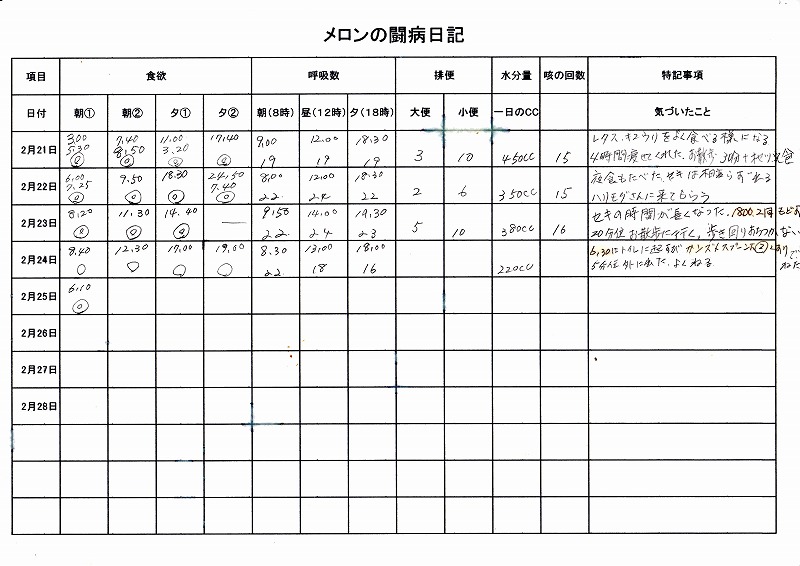 メロンの闘病日記
項目 食欲 呼吸数 排便 水分量 咳の回数 特記事項
日付 朝① 朝② 夕① 夕② 朝(8時) 昼(12時) 夕(18時) 大便 小便 一日のCC 気づいたこと
3,00 7,40 11,00 17,40 9,00 12,00 18,30 レタス、キュウリをよく食べる様になる
2月21日 5,30 8,50 3,20 ◎ 19 19 19 3 10 450cc 15 4時間寝せてくれた、お散歩
◎ ◎ ◎
6,00 9,50 18,30 24,50 8,00 12,00 18,30 夜食もたべた、セキは相変らずでる
2月22日 7,25 ◎ ◎ 7,40 22 24 22 2 6 350cc 15 ハリモグさんに来てもらう
◎ ◎
8,20 11,30 14,40 — 9,50 14,00 19,30 セキの時間が長くなった、1800、2回
2月23日 ◎ ◎ ◎ 22 24 23 5 10 380cc 16 20分位お散歩に行く、歩き回り
8,40 12,30 17,00 19,00 8,30 13,00 18,00 6,30にトイレに起すが
2月24日 ○ ○ ○ ○ 22 18 16 220cc 5分位外に出た、よくねる
6,10
2月25日 ◎
2月26日
2月27日
2月28日